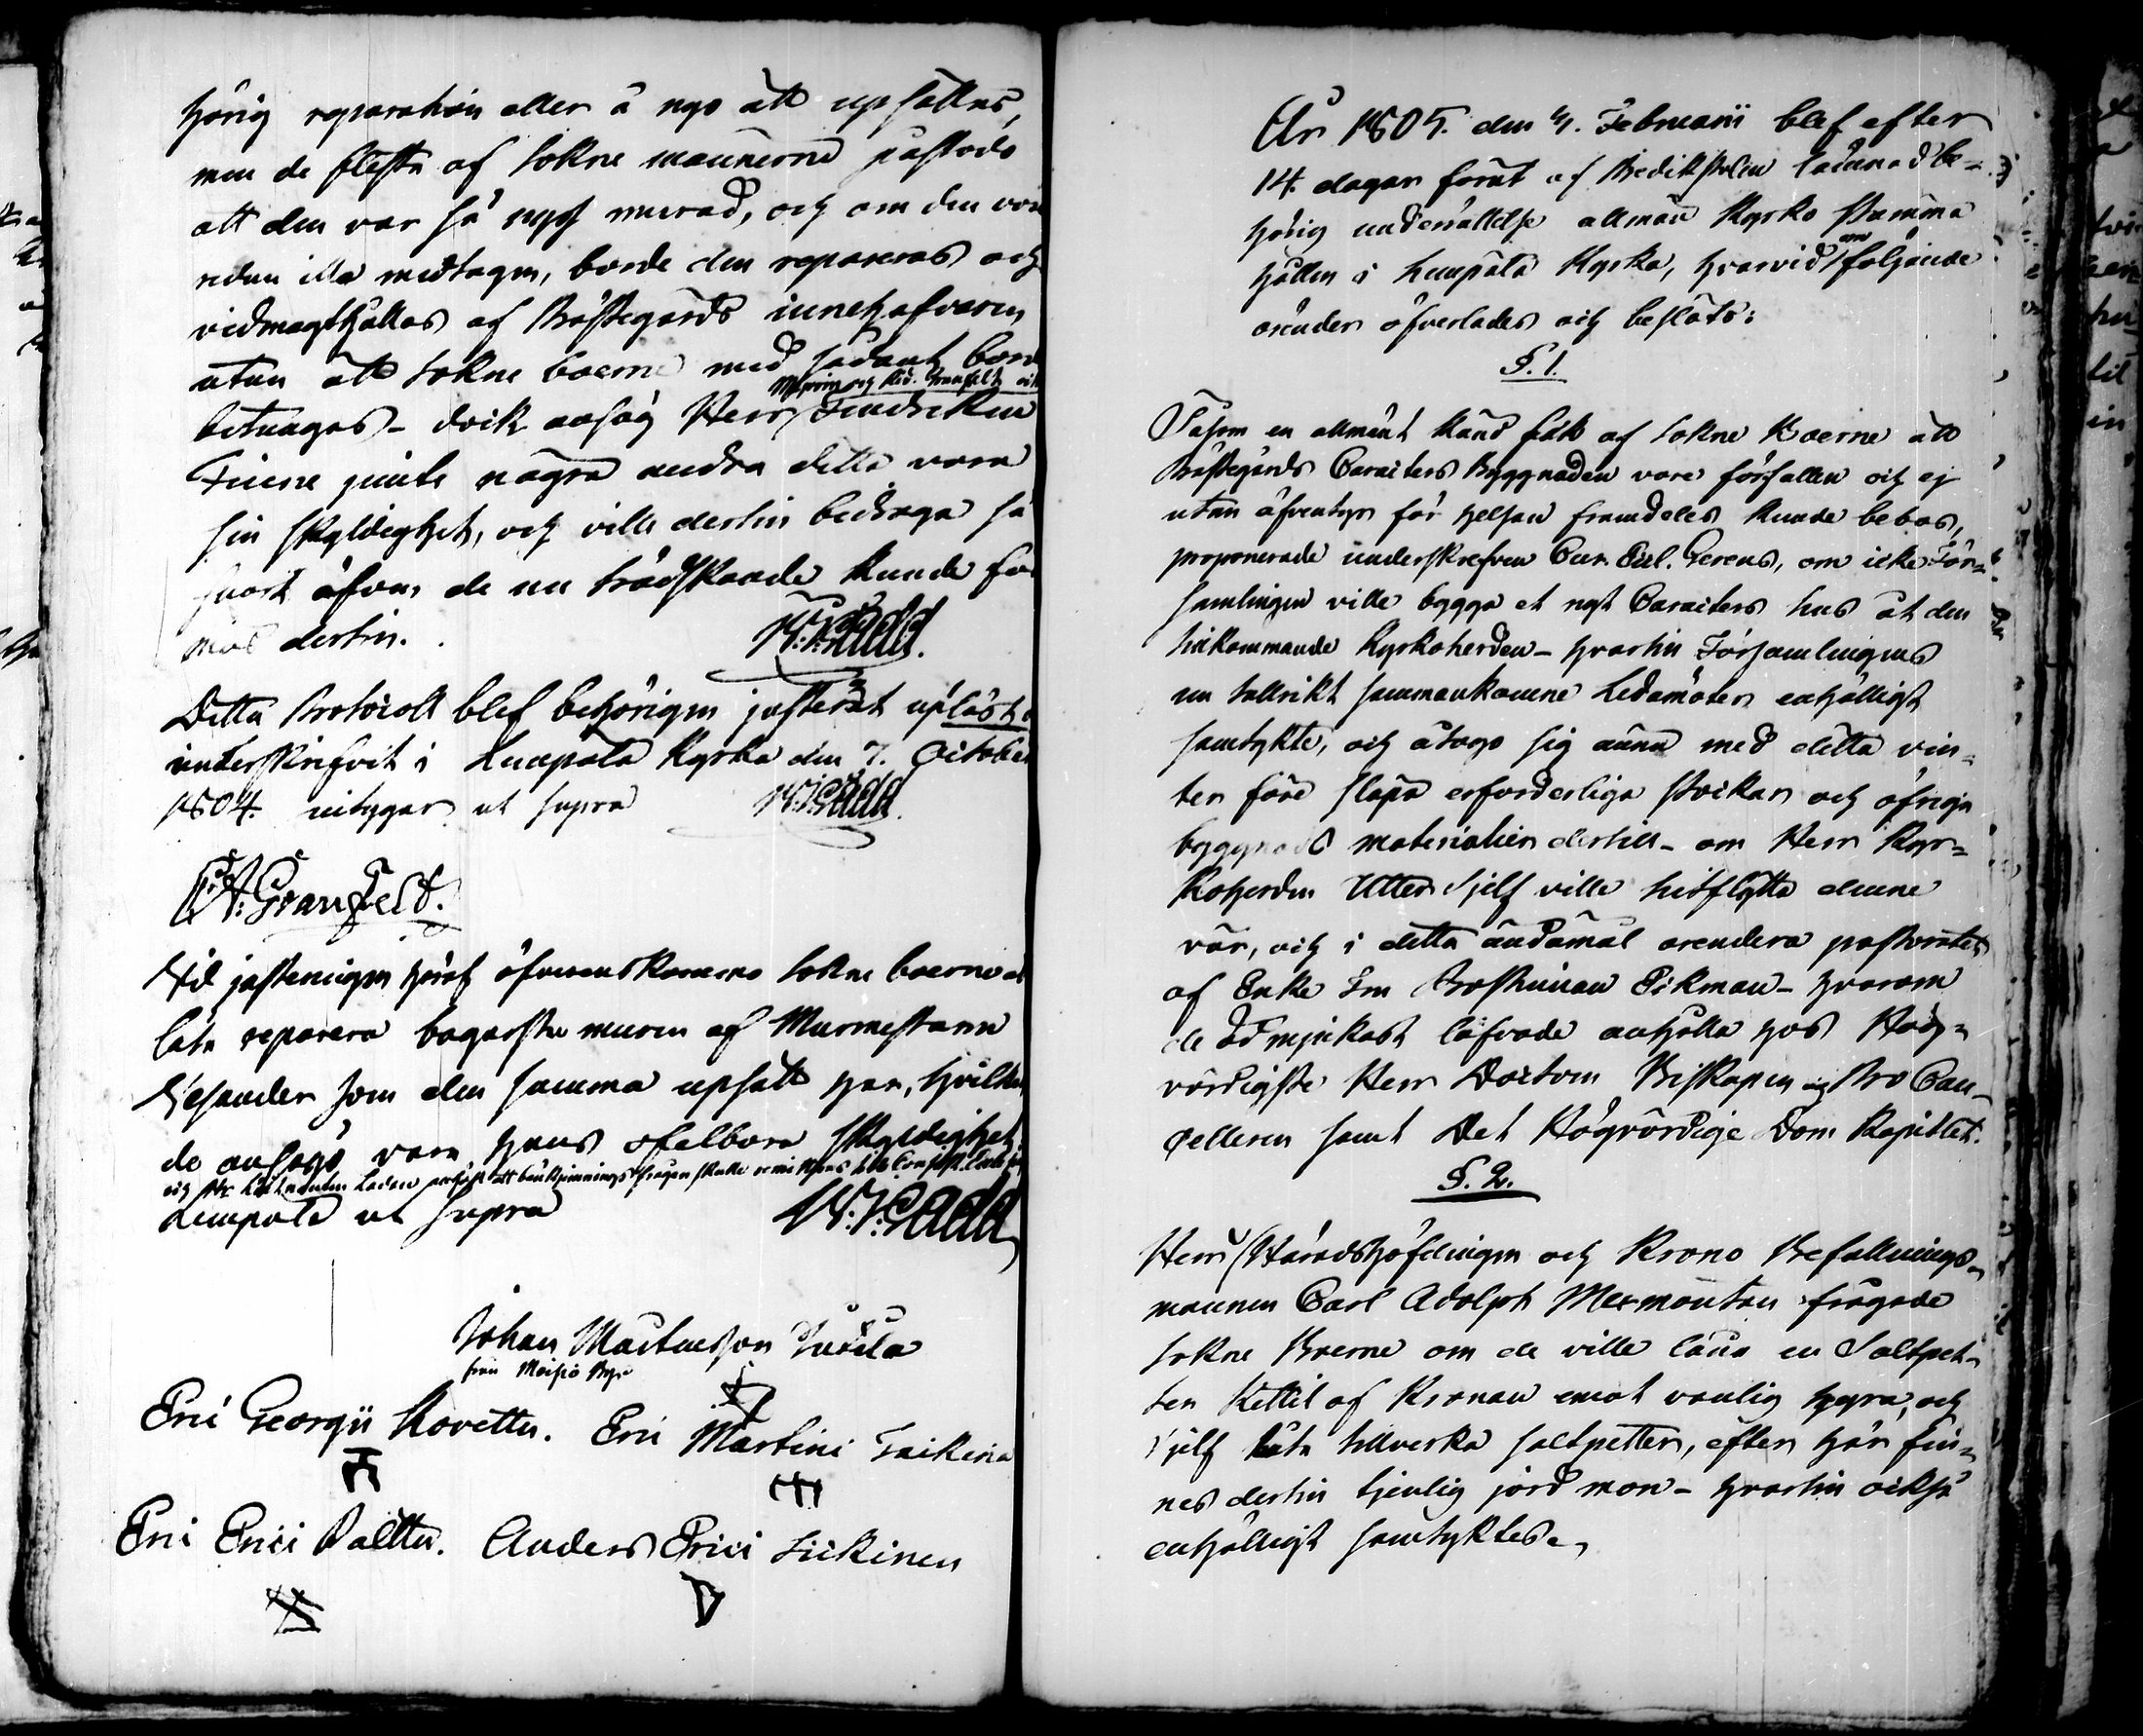 hörig reparation eller å nyo att upsättas,
men de flästa af Sokne mannerne påstodo
att den var så nys murad, och om den vore
redan illa medtagen, borde den reparas och
vidmagthållas af Prästegårds innehafvaren
utan att Sokne boerne med sådant borde
Majoren och Rid. Granfelt och
betungas - dock ansåg Herr Fendriken
Fieene jemte några andra detta vara
sin skyldighet, och ville dertil bidraga så
snart äfven de nu trädskande kunde för
mås dertil.
W: J: Cadd.
Detta Protocoll blef behörigen justerat upläst o
underskrifvit i Lempälä Kyrka den 7. October
1804. intygar ut supra W: J: Cadd.
C: A: Granfelt.
Vid justeringen häraf öfverenskommo Sokne boerne at
låta reparera bagarstu muren af Murmestaren
som den samma upsatt har, hvilket
de ansågo vara hans ofelbara skyldighet,
Lempälä ut supra W: J: Cadd
Johan Mattsson
från Moisio By
Eric Georgii Kovettu. Eric Martini
Eric Erici Pättu. Anders Erici Sickinen
År 1805. den 4. Februarii blef efter
14. dagar förut af Predikstolen lämnad be-
hörig underrättelse allmän Kyrko stämma
hållen i Lempälä Kyrka, hvarvid om följande
ärender öfverlades och beslöts:
§. 1.
Såsom en allmänt känd sak af Sokne Boerne att
Prästegårds Caracters Byggnaden vore förfallen och ej
utan äfventyr för helsan framdeles kunde bebos,
proponerade underskrefven Cur. Gerens, om icke För-
samlingen ville bygga et nyt Caracters hus åt den
tilkommande Kyrkoherden - hvartil Församlingens
nu talrikt sammankomne Ledamöter enhälligt
samtykte, och åtogo sig ännu med detta vin-
ter före släpa erforderliga stockar och öfriga
byggnads materialier dertill - om Herr Kyr-
koherden Utter sjelf ville hitflytta denne
vår, och i detta ändamål arendera pastoratet
af Enke Fru Prostinnan Eikman - hvarom
de ödmjukast lofvade anhålla hos Hög-
vördigste Herr Doctorn Biskopen och Pro Can-
celleren samt Det Högvördige Dom Kapitlet.
§. 2.
Herr Häradshöfdingen och Krono Befallnings-
mannen Carl Adolph Mermoutou frågade
Sokne Boerne om de ville låna en Saltpet-
ter Kettil af Kronan emot vanlig hyra, och
sjelf låta tillverka saltpetter, efter här fin-
nes dertil tjenlig jord mon - hvartil också
enhälligt samtyktes.